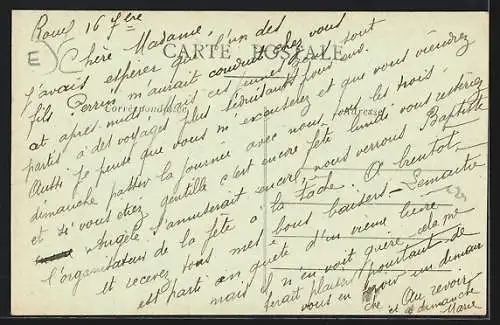 16
Chère Madame,
CARTE POSTALE
J'avais espérer qu'l'un des
fils Perrin m'aurait conduit chez vous
cet après midi mais ces sont tout
partis à des voyages plus séduisants pour eux.
Correspondance
Adresse
Aussi je pense que vous m'excuserez et que vous viendrez
dimanche passer la journée avec nous tous les trois,
et si vous étiez gentille c'est encore fête lundi vous resteriez
Angèle s'amuserait encore, nous verrons Baptiste
l'organisateur de la fête à la A bientôt
et recevez tous mes bons baisers
est parti en quête d'un vieux lièvre
mais n'en voit guère, cela me
ferait plaisir pourtant de
vous en faire un
Au revoir
à dimanche
Marie